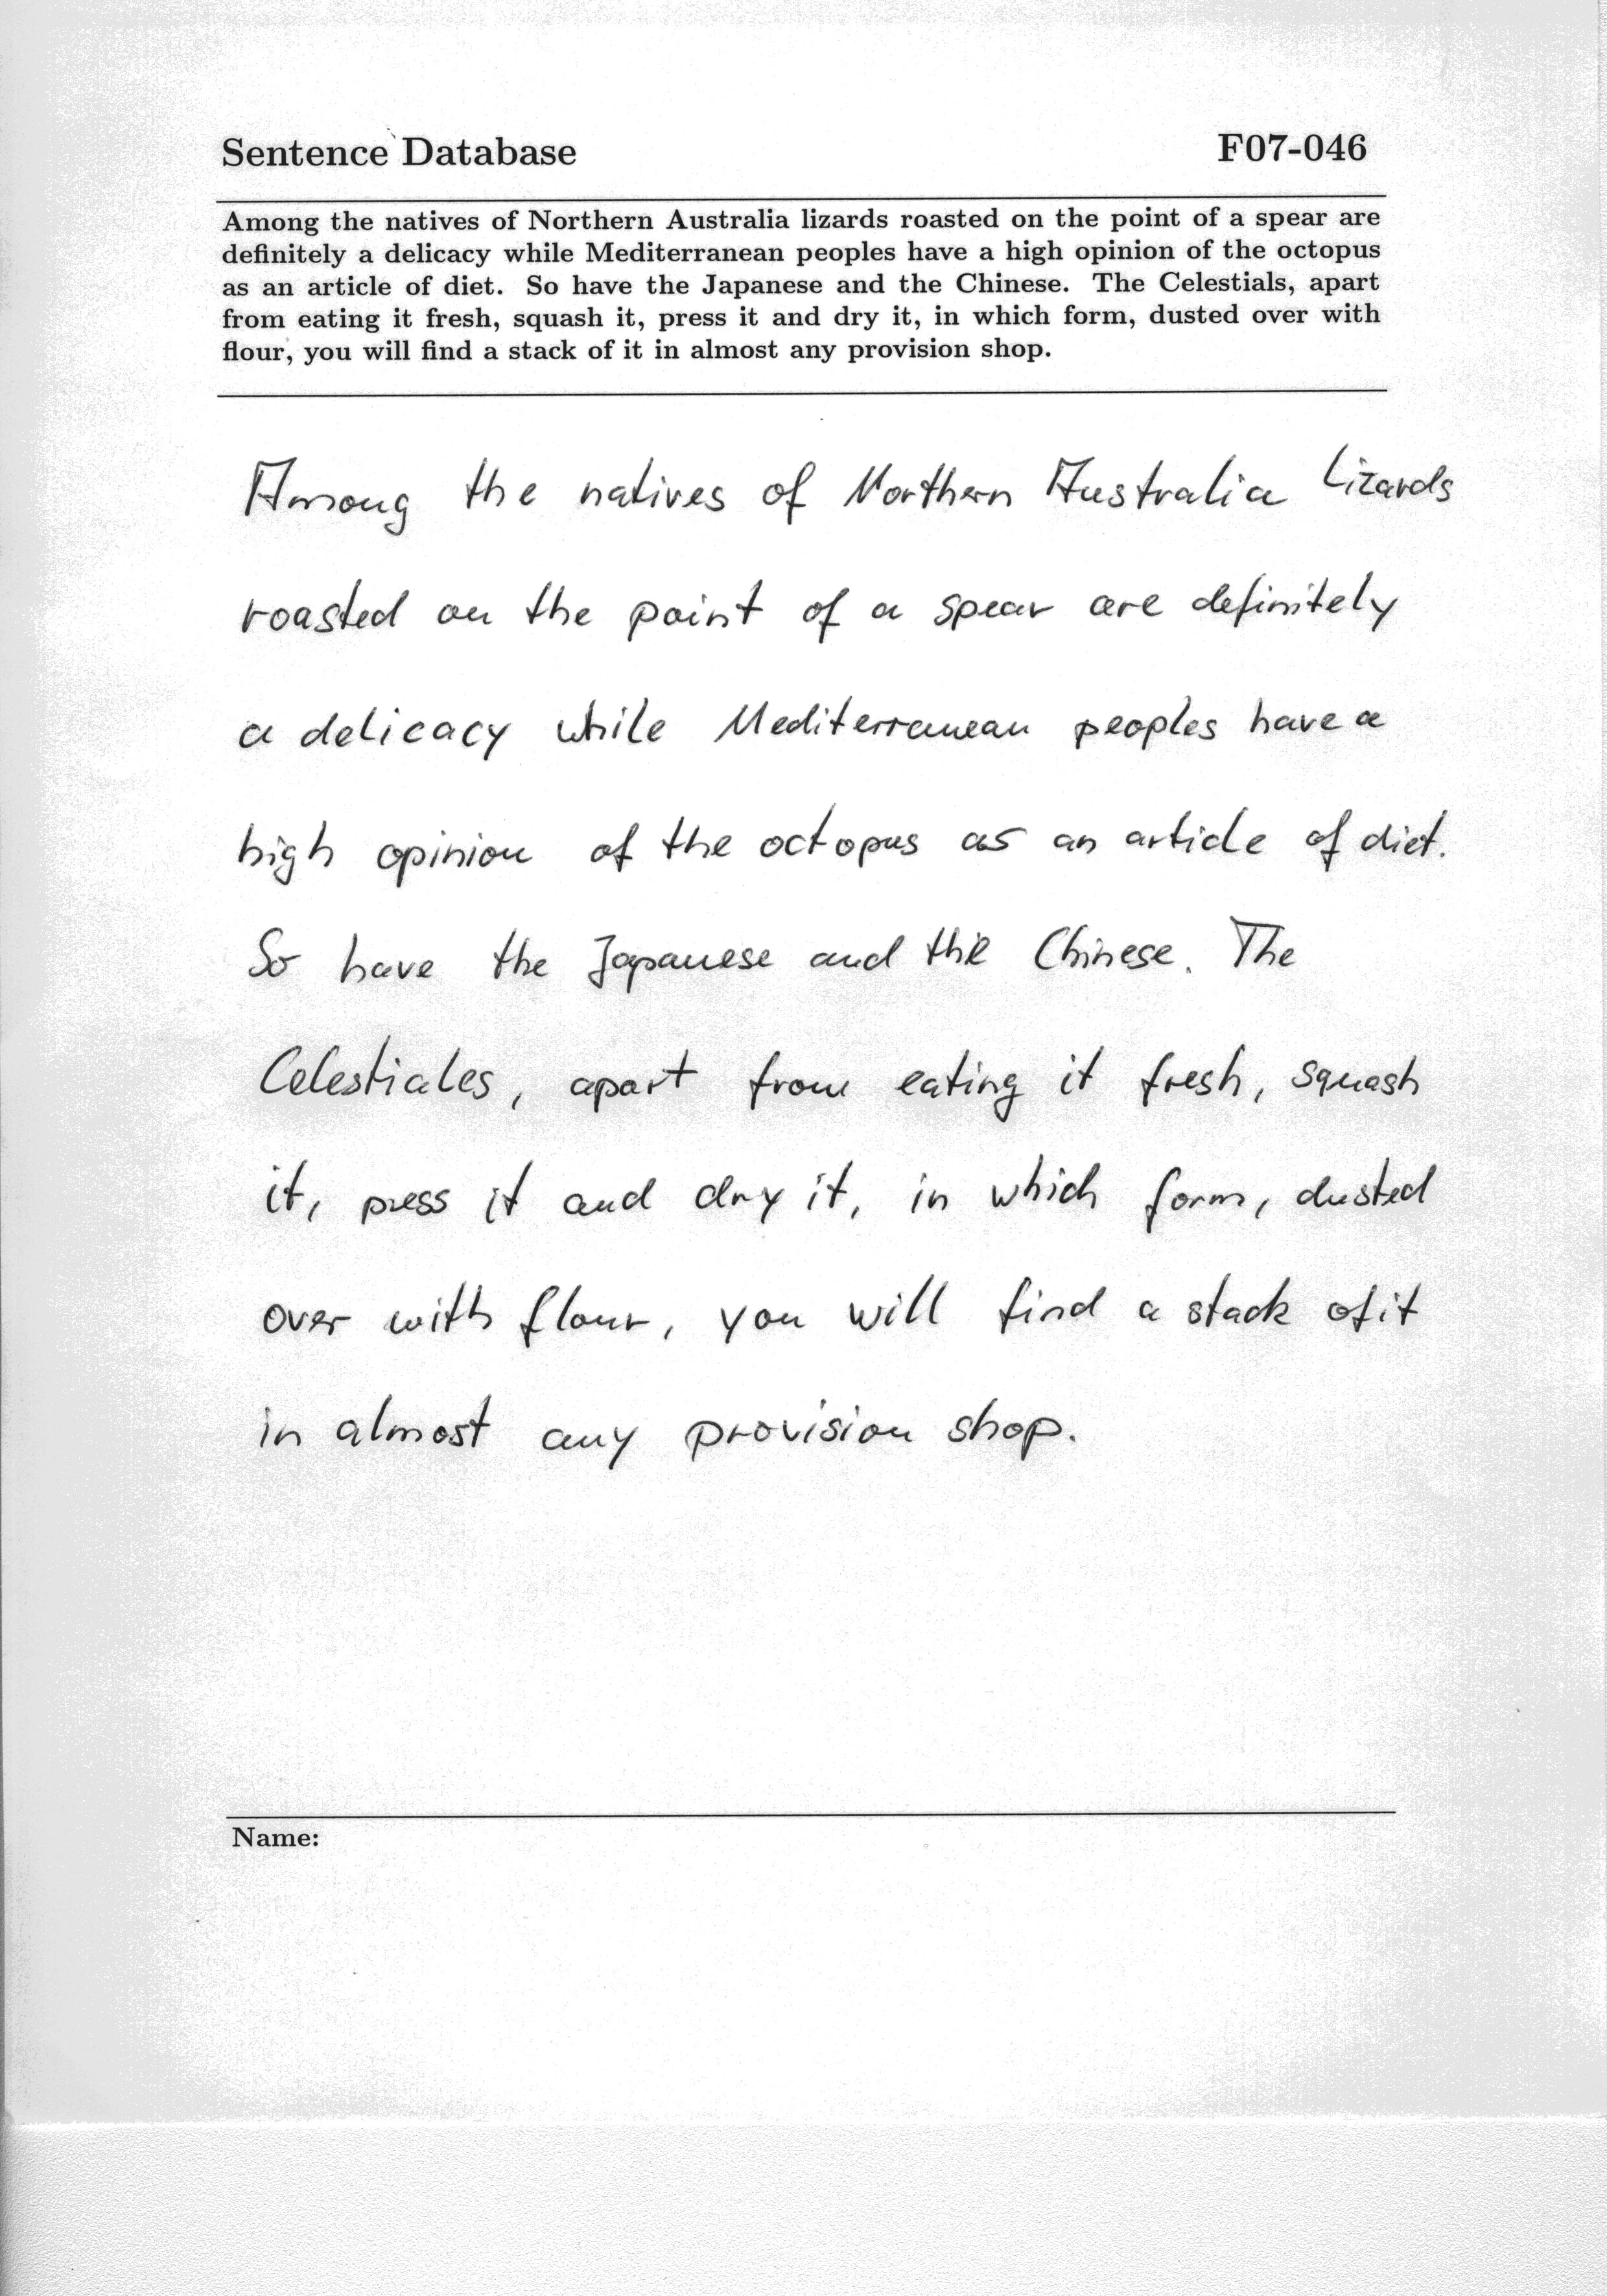 Sentence Database F07-046
Among the natives of Northern Australia lizards roasted on the point of a spear are
definitely a delicacy while Mediterranean peoples have a high opinion of the octopus
as an article of diet. So have the Japanese and the Chinese. The Celestials, apart
from eating it fresh, squash it, press it and dry it, in which form, dusted over with
flour, you will find a stack of it in almost any provision shop.
Among the natives of Northern Australia Lizards
roasted on the point of a spear are definitely
a delicacy while Mediterranean peoples have a
high opinion of the octopus as an article of diet.
So have the Japanese and the Chinese. The
Celestiales, apart from eating it fresh, squash
it, press it and dry it, in which form, dusted
over with flour, you will find a stack of it
in almost any provision shop.
Name: